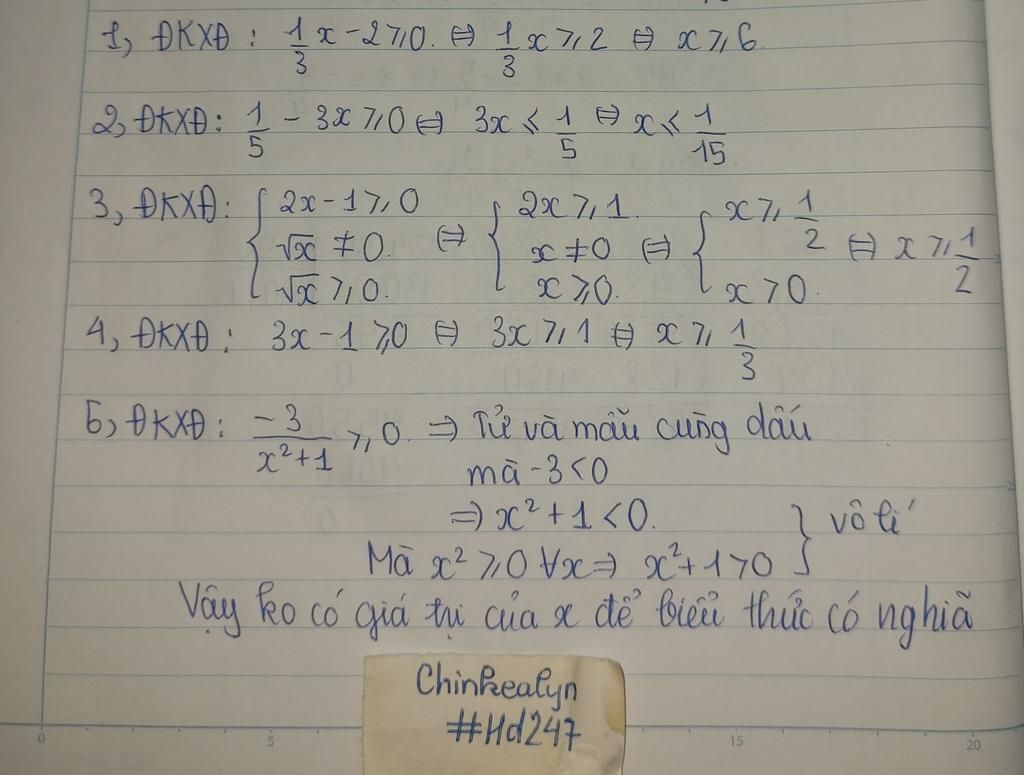 1, ĐKXĐ : 1/3 x - 2 ≥ 0. ⇔ 1/3 x ≥ 2 ⇔ x ≥ 6.
2, ĐKXĐ : 1/5 - 3x ≥ 0 ⇔ 3x ≤ 1/5 ⇔ x ≤ 1/15.
3, ĐKXĐ : { 2x - 1 ≥ 0 ; √x ≠ 0. ; √x ≥ 0. ⇔ { 2x ≥ 1. ; x ≠ 0 ; x ≥ 0. ⇔ { x ≥ 1/2 ; x > 0. ⇔ x ≥ 1/2
4, ĐKXĐ : 3x - 1 ≥ 0 ⇔ 3x ≥ 1 ⇔ x ≥ 1/3
5, ĐKXĐ : -3/(x² + 1) ≥ 0. ⇒ Tử và mẫu cùng dấu
mà -3 < 0
⇒ x² + 1 < 0.
Mà x² ≥ 0 ∀x ⇒ x² + 1 > 0 } vô lí
Vậy ko có giá trị của x để biểu thức có nghiã
Chinkealyn
#Hd247
0 5 15 20